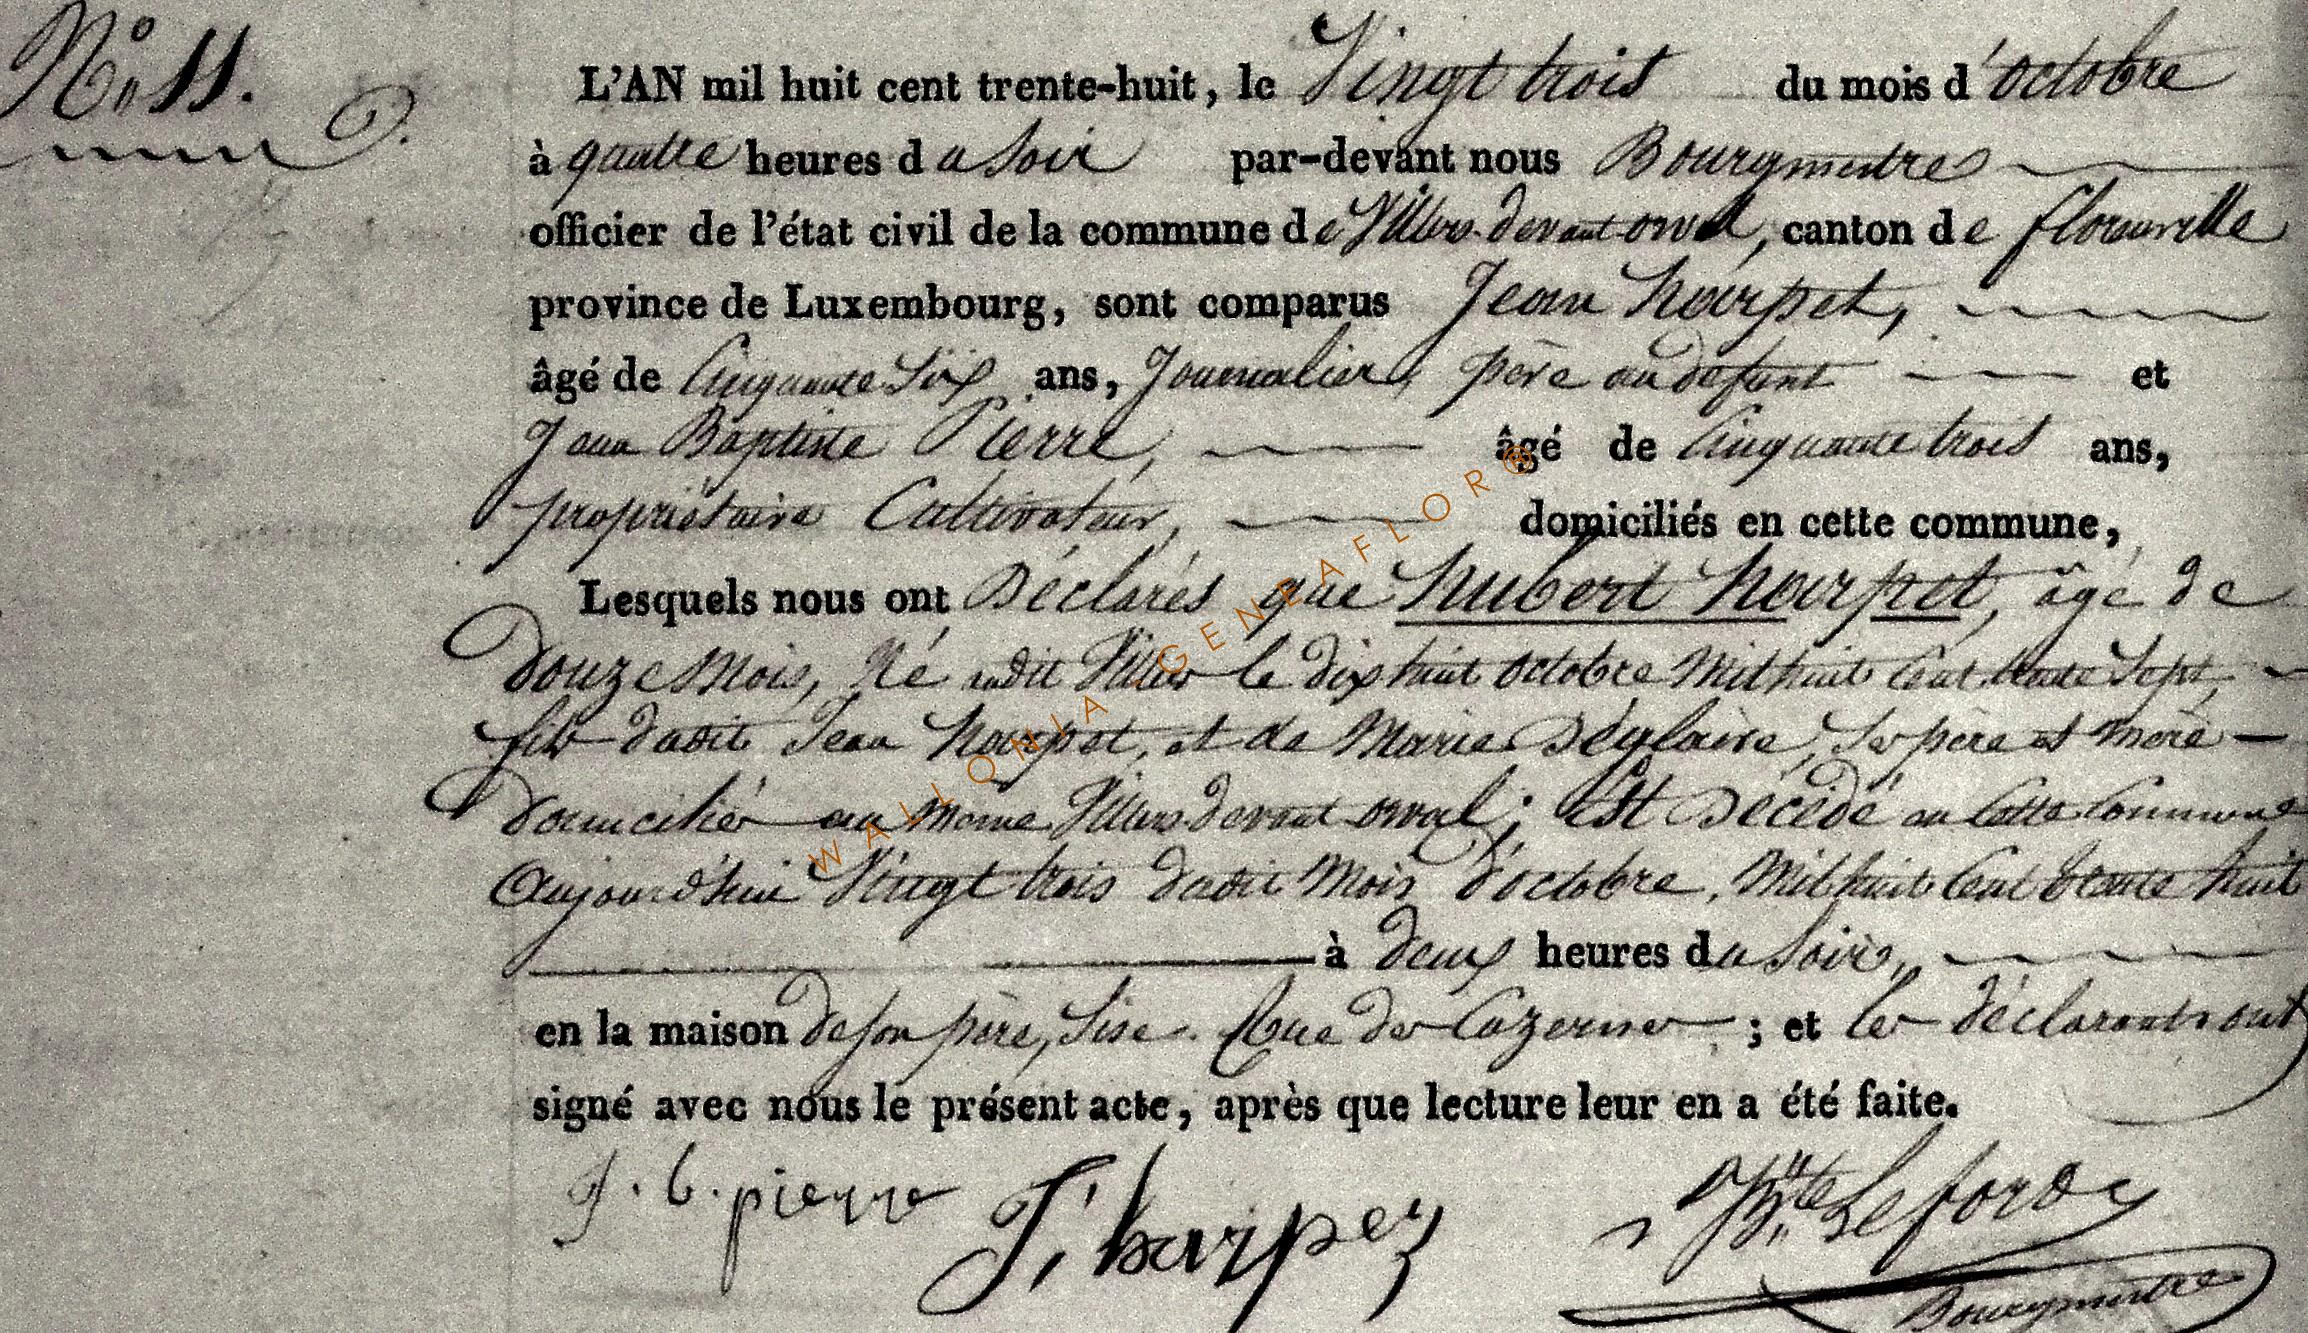 N° 11.
L'AN mil huit cent trente-huit, le Vingt trois du mois d'octobre
à quatre heures du Soir par-devant nous Bourgmestre
officier de l'état civil de la commune de Villers-devant-orval, canton de florenville
province de Luxembourg, sont comparus Jean harpet,
âgé de Cinquante Six ans, Journalier, père au défunt et
Jean Baptiste Pierre, âgé de Cinquante trois ans,
propriétaire Cultivateur, domiciliés en cette commune,
Lesquels nous ont Déclarés que hubert harpet, âgé de
douze Mois, Né audit Villers le dix huit octobre Mil huit Cent trente Sept,
fils dudit Jean harpet, et de Marie Déglaire, Ses père et mère
domiciliés au même Villers devant orval; Est Décédé en Cette Commune
Aujourd'hui Vingt trois dudit Mois d'octobre, Mil huit Cent trente huit
à deux heures du Soir,
en la maison de son père, Sise Rue des Cazernes ; et les déclarants ont
signé avec nous le présent acte, après que lecture leur en a été faite.
J. b. pierre J. harpez Bte Leforay
Bourgmestre
WALLONIA GENEAFLOR®